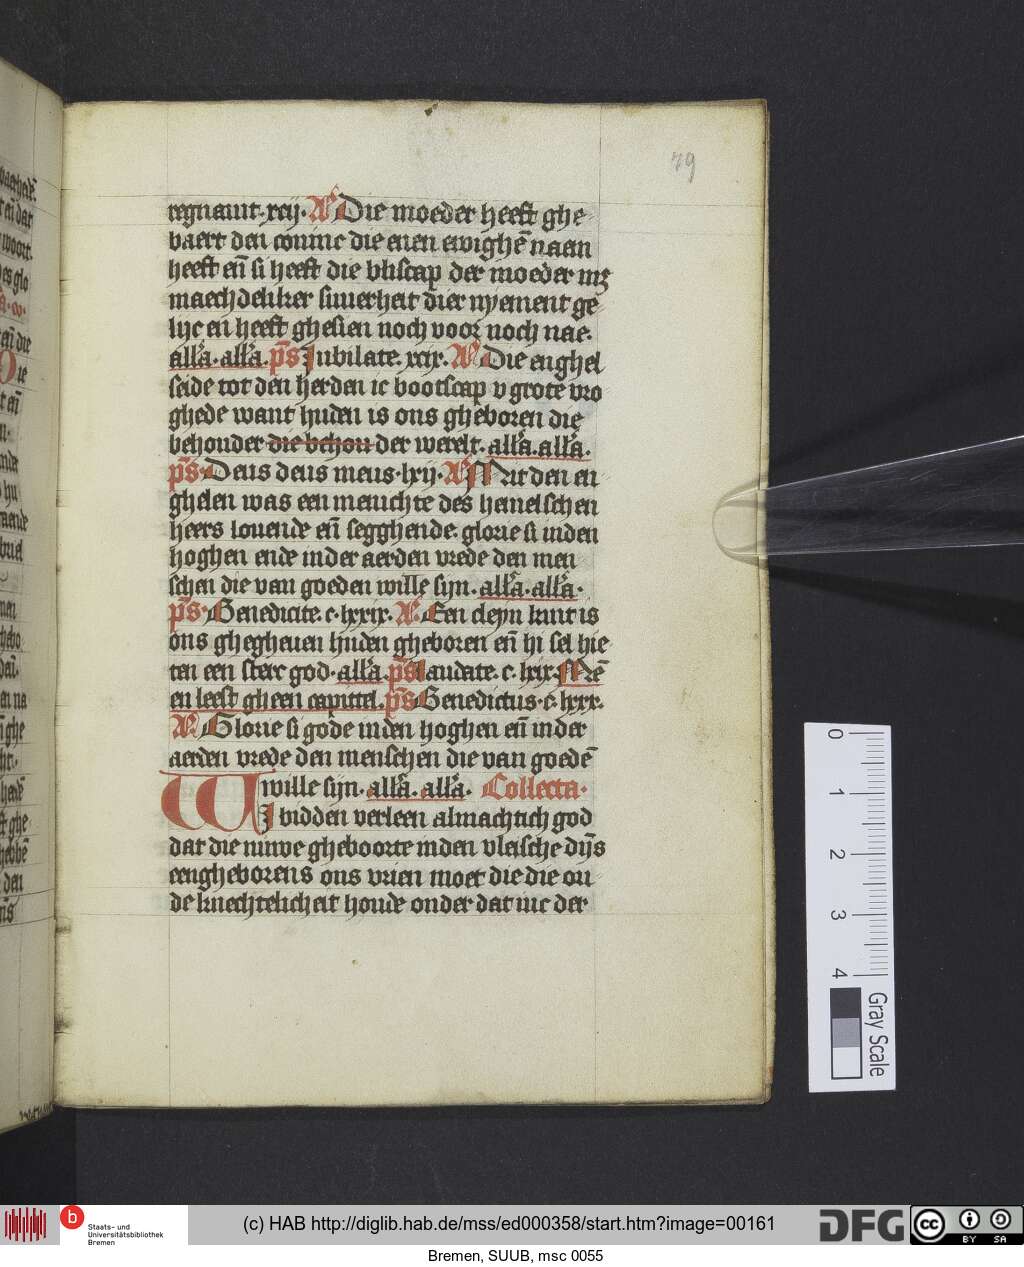 79
regnauit·xcij· Aᵃ Die moeder heeft ghe
baert den coninc die enen ewighē naem
heeft eñ si heeft die bliscap der moeder mz
maechdeliker suuerheit dier nyement ge
lijc en heeft ghesien noch voor noch nae·
all'a·all'a. p̄s Jubilate.xcix. Aᵃ Die enghel
seide tot den herden ic bootscap v grote vro
ghede want huden is ons gheboren die
behouder die behou der werelt·all'a.all'a.
p̄s· Deus deus meus·lxij· Aᵃ Mit den en
ghelen was een menichte des hemelschen
heers louende eñ segghende·glorie si inden
hoghen ende inder aerden vrede den men
schen die van goeden wille sijn·all'a·all'a·
p̄s· Benedicite.c·lxxix. Aᵃ. Een cleyn kint is
ons ghegheuen huden gheboren eñ hi sel hie
ten een sterc god·all'a. p̄s laudate.c·lxix· Mē
en leest gheen capittel. p̄s Benedictus·c·lxxx.
Aᵃ. Glorie si gode inden hoghen eñ inder
aerden vrede den menschen die van goedē
wille sijn·all'a·all'a· Collecta·
WJ bidden verleen almachtich god
dat die niuwe gheboorte inden vleische dijs
eengheborens ons vrien moet die die ou
de knechtelicheit houde onder dat iuc der
0
1
2
3
4
Gray Scale
Staats- und
Universitätsbibliothek
Bremen
(c) HAB http://diglib.hab.de/mss/ed000358/start.htm?image=00161
DFG
cc BY SA
Bremen, SUUB, msc 0055